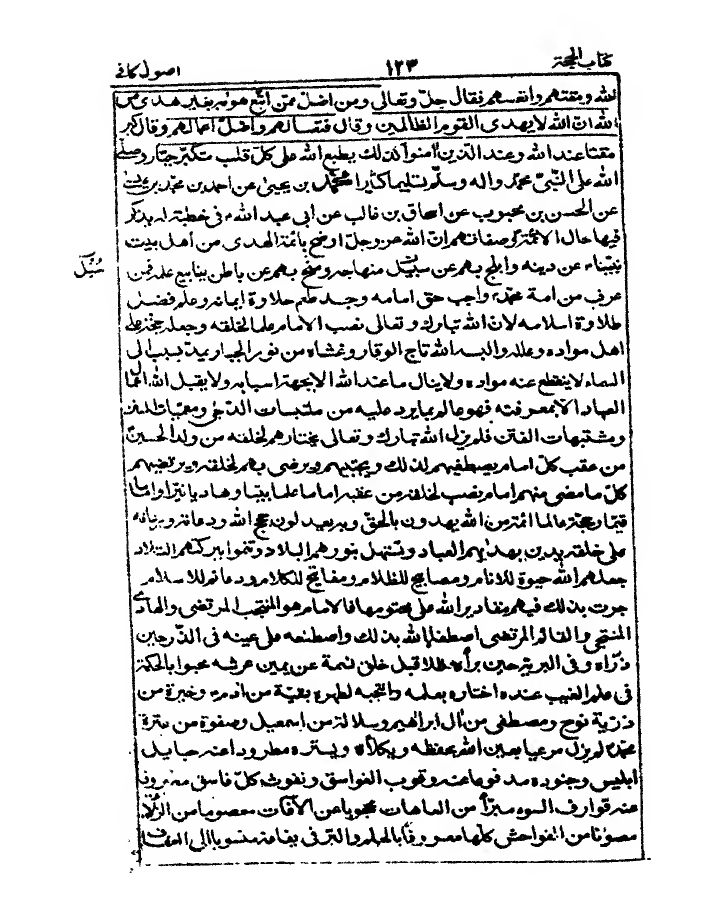 كتاب الحجة ١٢٣ اصول كافى
لله ومقتهم وانفسهم فقال جل وتعالى ومن اضل ممن اتبع هويه بغير هدى من
الله ان الله لا يهدى القوم الظالمين وقال فتعسا لهم واضل اعمالهم وقال كبر
مقتا عند الله وعند الذين آمنوا كذلك يطبع الله على كل قلب متكبر جبار وصلى
الله على النبى محمد واله وسلم تسليما كثيرا محمد بن يحيى عن احمد بن محمد بن عيسى
عن الحسن بن محبوب عن اسحاق بن غالب عن ابى عبد الله ع فى خطبة له يذكر
فيها حال الائمة ع وصفاتهم ان الله عز وجل اوضح بائمة الهدى من اهل بيت
نبينا ع عن دينه وابلج بهم عن سبيل منهاجه ومنح بهم عن باطن ينابيع علمه فمن
سُبُل
عرف من امة محمد ص واجب حق امامه وجد طعم حلاوة ايمانه وعلم فضل
طلاوة اسلامه لان الله تبارك وتعالى نصب الامام علما لخلقه وجعله حجة على
اهل مواده وعالمه والبسه الله تاج الوقار وغشاه من نور الجبار يمد بسبب الى
السماء لا ينقطع عنه مواده ولا ينال ما عند الله الا بجهة اسبابه ولا يقبل الله اعمال
العباد الا بمعرفته فهو عالم بما يرد عليه من ملتبسات الدجى ومعميات السنن
ومشتبهات الفتن فلم يزل الله تبارك وتعالى يختارهم لخلقه من ولد الحسين
من عقب كل امام يصطفيهم لذلك ويجتبيهم ويرضى بهم لخلقه ويرتضيهم
كل ما مضى منهم امام نصب لخلقه من عقبه اماما علما بينا وهاديا نيرا واماما
قيما وحجة عالما ائمة من الله يهدون بالحق وبه يعدلون حجج الله ودعاته ورعاته
على خلقه يدين بهديهم العباد وتستهل بنورهم البلاد وتنموا ببركتهم التلاد
جعلهم الله حيوة للانام ومصابيح للظلام ومفاتيح للكلام ودعائم للاسلام
جرت بذلك فيهم مقادير الله على محتومها فالامام هو المنتجب المرتضى والهادى
المنتجى والقائم المرتجى اصطفاه الله بذلك واصطنعه على عينه فى الذر حين
ذرأه وفى البرية حين برأه ظلا قبل خلق نسمة عن يمين عرشه محبوا بالحكمة
فى علم الغيب عنده اختاره بعلمه وانتجبه لطهره بقية من ادم ع وخيرة من
ذرية نوح ومصطفى من آل ابراهيم وسلالة من اسمعيل وصفوة من عترة
محمد ص لم يزل مرعيا بعين الله يحفظه ويكلأه ويستره مطرودا عنه حبايل
ابليس وجنوده مدفوعا عنه وقوب الغواسق ونفوث كل فاسق مصروفا
عنه قوارف السوء مبرأ من العاهات محجوبا عن الآفات معصوما من الزلات
مصونا من الفواحش كلها معروفا بالحلم والبر فى يفاعه منسوبا الى العفاف